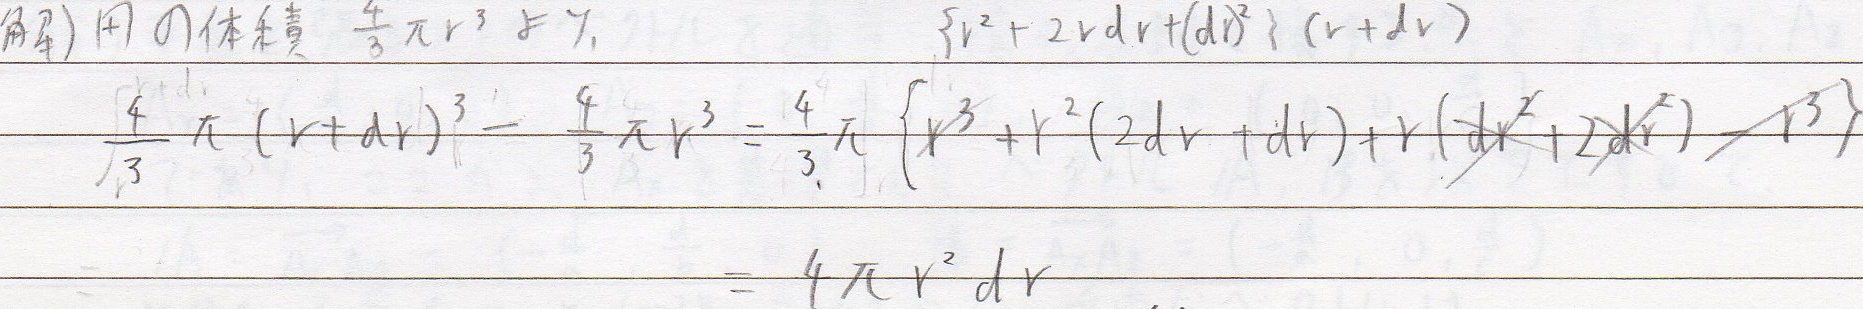 解) 円の体積 4/3 πr³ より, {r² + 2rdr + (dr)²} (r + dr)
4/3 π (r + dr)³ − 4/3 πr³ = 4/3 π {r³ + r²(2dr + dr) + r(dr² + 2dr²) − r³}
= 4πr²dr